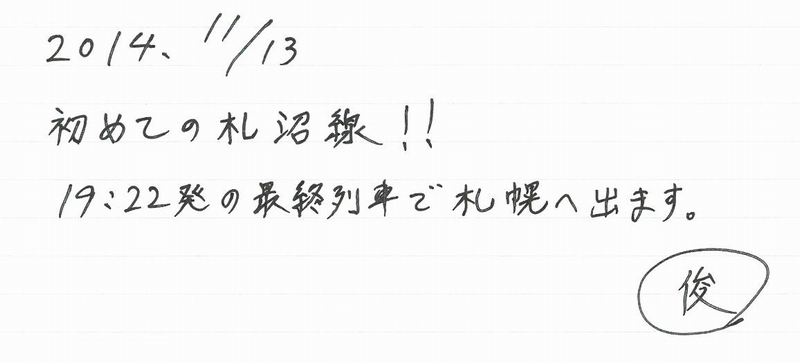 2014、11/13
初めての札沼線!!
19:22発の最終列車で札幌へ出ます。
俊